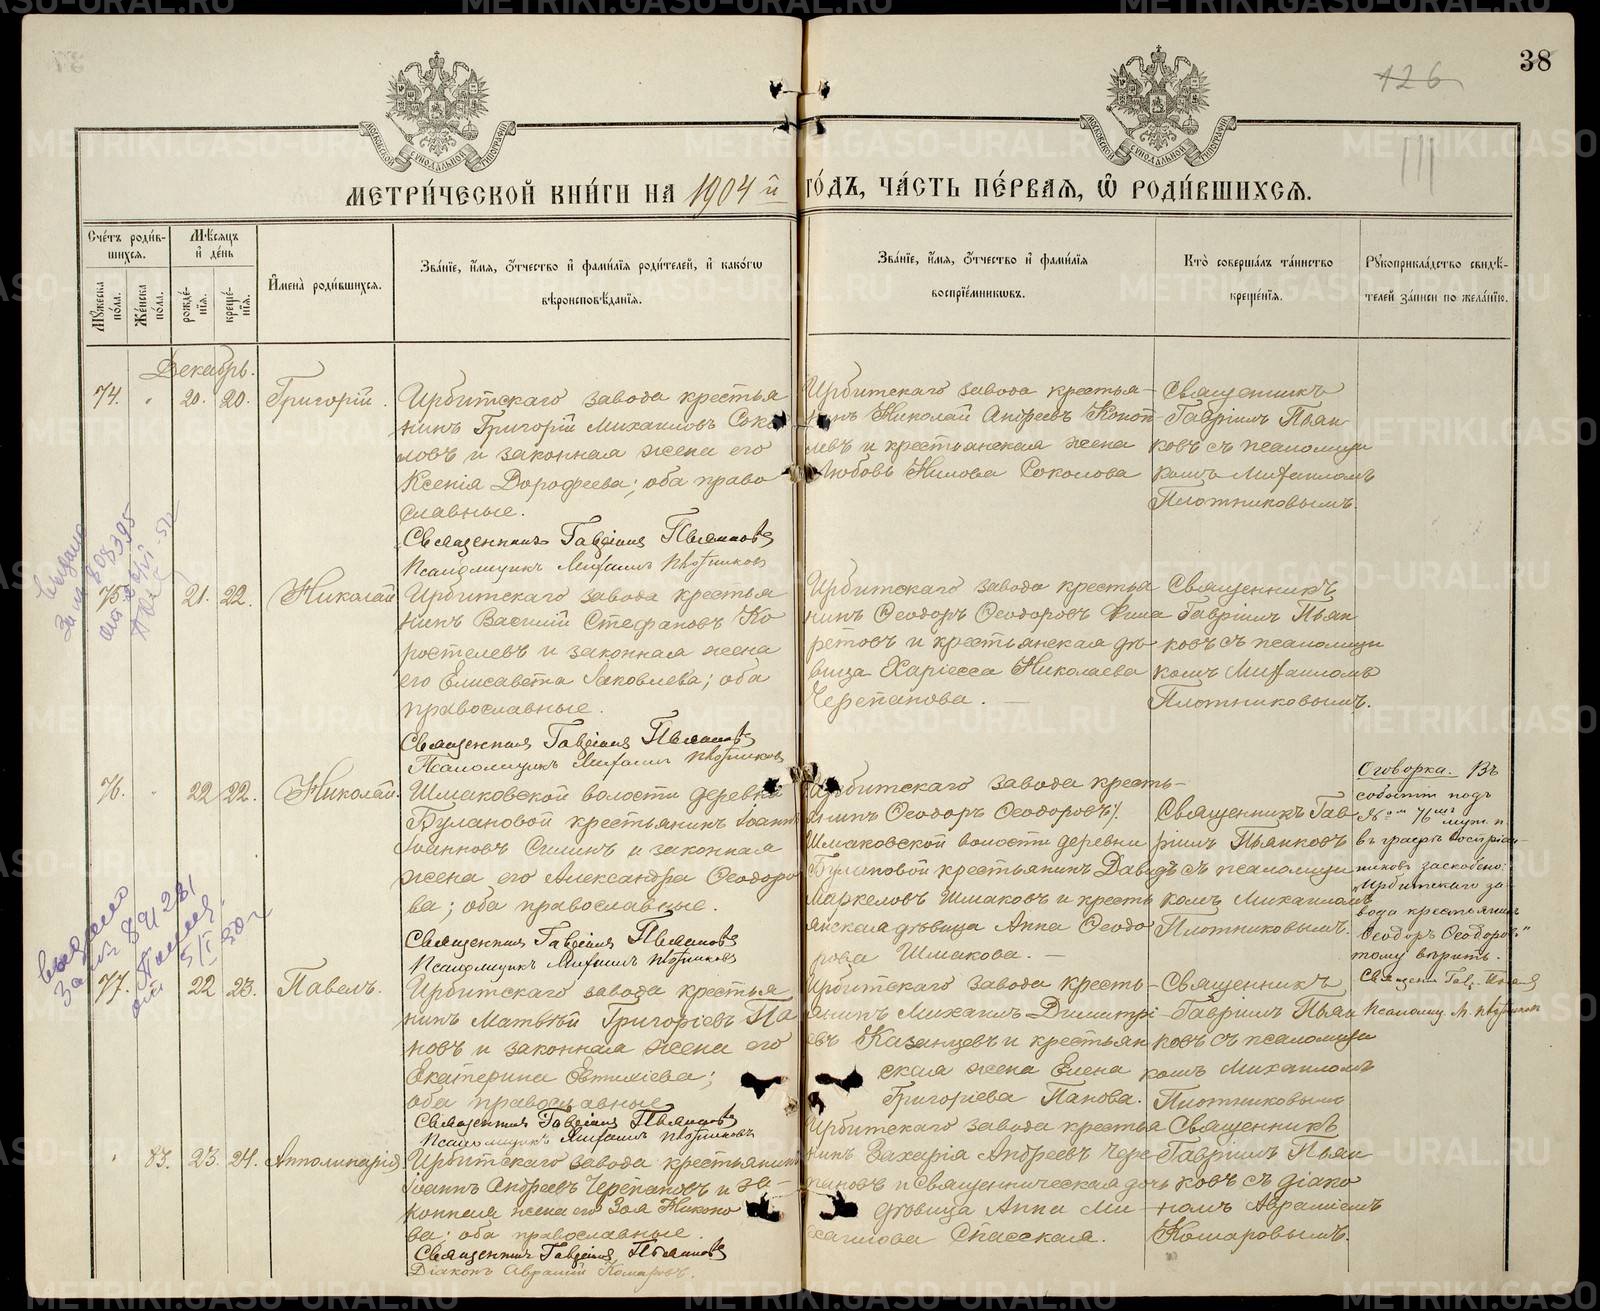 38
126
111
МОСКОВСКОЙ СѴНОДАЛЬНОЙ ТИПОГРАФІИ
МОСКОВСКОЙ СѴНОДАЛЬНОЙ ТИПОГРАФІИ
МЕТРИ́ЧЕСКОЙ КНИ́ГИ НА 1904 й ГО́ДЪ, ЧА́СТЬ ПЕ́РВАЯ, Ѡ РОДИ́ВШИХСЯ.
Сче́тъ роди́в-
шихся.
Му́жеска по́ла.
Же́нска по́ла.
Мѣ́сяцъ
и де́нь
рожде́-
нїя.
креще́-
нїя.
И҆мена̀ роди́вшихся.
Зва́нїе, и҆́мя, ѻ҆́тчество и҆ фами́лїя роди́телей, и҆ како́гѡ
вѣроисповѣ́данїя.
Зва́нїе, и҆́мя, ѻ҆́тчество и҆ фами́лїя
воспрїе́мникѡвъ.
Кто̀ соверша́лъ та́инство
креще́нїя.
Рꙋкоприкла́дство свидѣ́-
телей за́писи по жела́нїю.
Декабрь.
74. " 20. 20. Григорій.
Ирбитскаго завода крестья
нинъ Григорій Михаиловъ Соко
ловъ и законная жена его
Ксенія Дорофеева; оба право
славные.
Священникъ Гавріилъ Пьянковъ
Псаломщикъ Михаилъ Плотниковъ
Ирбитскаго завода крестья-
нинъ Николай Андреевъ Коноп
левъ и крестьянская жена
Любовь Нилова Соколова
Священникъ
Гавріилъ Пьян
ковъ съ псаломщи
комъ Михаиломъ
Плотниковымъ.
выдано
75. 21. 22. Николай
Ирбитскаго завода крестья
нинъ Василій Стефановъ Ко
ростелевъ и законная жена
его Елисавета Яковлева; оба
православные.
Священникъ Гавріилъ Пьянковъ
Псаломщикъ Михаилъ Плотниковъ
Ирбитскаго завода крестья
нинъ Ѳеодоръ Ѳеодоровъ Фила
ретовъ и крестьянская дѣ
вица Харіесса Николаева
Черепанова.
Священникъ
Гавріилъ Пьян
ковъ съ псаломщи
комъ Михаиломъ
Плотниковымъ.
76. " 22 22. Николай.
Шмаковской волости деревни
Булановой крестьянинъ Іоаннъ
Іоанновъ Силинъ и законная
жена его Александра Ѳеодоро
ва; оба православные.
Священникъ Гавріилъ Пьянковъ
Псаломщикъ Михаилъ Плотниковъ
Ирбитскаго завода кресть-
янинъ Ѳеодоръ Ѳеодоровъ
Шмаковской волости деревни
Булановой крестьянинъ Давидъ
Маркеловъ Шмаковъ и кресть
янская дѣвица Анна Ѳеодо
рова Шмакова.
Священникъ Гав-
ріилъ Пьянковъ
съ псаломщи
комъ Михаиломъ
Плотниковымъ.
Оговорка. Въ
событіи подъ
№ 76 муж. п
въ графѣ воспріем-
никовъ заскоблено:
"Ирбитскаго за
вода крестьянинъ
Ѳеодоръ Ѳеодоровъ"
тому вѣрить.
Священ. Гав. Пьянк
Псаломщ. М. Плотников
выдано
77. 22 23. Павелъ.
Ирбитскаго завода крестья
нинъ Матвѣй Григоріевъ Па
новъ и законная жена его
Екатерина Евтихіева;
оба православные
Священникъ Гавріилъ Пьянковъ
Псаломщикъ Михаилъ Плотниковъ
Ирбитскаго завода кресть-
янинъ Михаилъ Димитрі-
евъ Казанцевъ и крестьян
ская жена Елена
Григоріева Панова.
Священникъ
Гавріилъ Пьян
ковъ съ псаломщи
комъ Михаиломъ
Плотниковымъ
" 83. 23. 24. Апполинарія.
Ирбитскаго завода крестьянинъ
Іоаннъ Андреевъ Черепановъ и за-
конная жена его Зоя Никоно
ва; оба православные.
Священникъ Гавріилъ Пьянковъ
Діаконъ Аврамій Комаровъ.
Ирбитскаго завода крестья
нинъ Захарія Андреевъ Чере
пановъ и Священническая дочь
дѣвица Анна Ми-
хаилова Спасская.
Священникъ
Гавріилъ Пьян
ковъ съ діако
номъ Авраміемъ
Комаровымъ.
METRIKI.GASO-URAL.RU